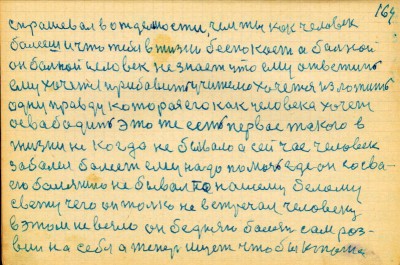 164
спрашевал в отдельности, чем ты как человек
болеш и что тебя в жизни беспокоет а больной
он больной человек не знает что ему ответить
ему хочется прибавить учителю хочется изложить
одну правду которая его как человека хочет
освабадить это же есть первое такого в
жизни не когда не бывало а сейчас человек
заболел болеет ему надо помочь где он со сва-
ею болезнию не бывал по нашему белому
свету чего он только не встречал человеку
в этом не везло он бедняга болезнь сам роз-
вил на себя а теперь ищет чтобы кто то